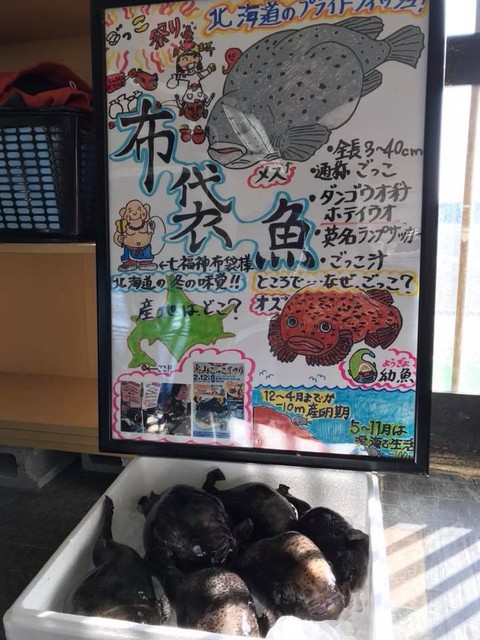 ごっこ祭り
北海道のプライドフィッシュ!
布袋魚
メス
・全長3〜40cm
・通称 ごっこ
・ダンゴウオ科
ホテイウオ
・英名 ランプサッカー
・ごっこ汁
←七福神布袋様
北海道の冬の味覚!!
ところで…なぜ、ごっこ?
産地はどこ?
オス
ようぎょ
幼魚
2.12
12〜4月までが
-10m 産卵期
5〜11月は
深海で生活